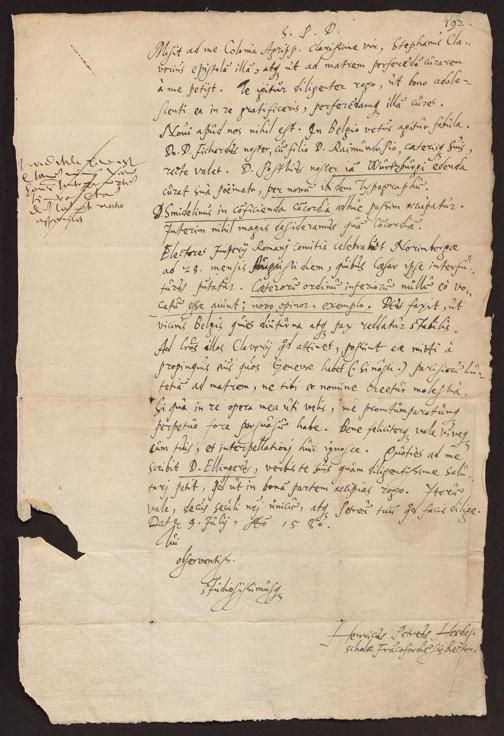 192.
S. P. D.
Misit ad me Colonia Agripp. clarissime vir, Stephanus Cla-
verius epistolā illā, atq; ut ad matrem perferēdā curarem
a me petijt. Te igitur diligenter rogo, ut bono adole-
scenti ea in re gratificeris, perferēdamq; illā cures.
Novi apud nos nihil est. In Belgio vetus agitur fabula.
D. D. Fichardus noster, cū filio D. Raimundo suo, caeterisq; suis,
recte valet. D. Posthius noster iā Würtzburgi edenda
curat sua poëmata, per novū ibidem typographū.
D. Smidelinus in cōficienda cōcordia adhuc passim occupatur.
Interim nihil magis desideramus quā cōcordiā.
Electores Imperij Romani comitia celebrabūt Norinbergae
ad 28. mensis Augusti diem, quibus Caesar ipse interfu-
turus putatur. Caeterorū ordinū inferiorū nullus eò vo-
catus esse aiunt; novo opinor, exemplo. Deus faxit, ut
vicinis Belgis quies diuturna atq; pax reddatur stabilis.
Ad lras illas Claverij qd attinet, possint eae mitti à
propinquis eius quos Genevae habet parisiorū Lu-
tetiā ad matrem, ne tibi eo nomine creetur molestia.
Si qua in re opera mea uti velis, me promtum paratumq;
perpetuo fore persuasus habe. Bene feliciterq; vale
cum tuis, et interpellationi huic ignosce. Quoties ad me
scribit D. Ellingerus, verbis te suis quàm diligentissime salu-
tari petit, qd ut in bonā partem accipias rogo. Iterū
vale, decus seculi nri unicū, atq; Petreū tuū qd facis dilige.
Dat. 9. Julij, Ao 1580.
tui
observantiss.
studiosissimusq;
Henricus Petreus Herdes.
scholae Fracofordiesis Rector.